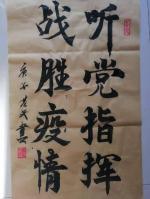 听党指挥
战胜疫情
庚子